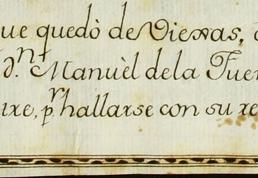 ue quedò de Viexas,
dⁿ. Manuèl dela Fuen
uxe, pʳ hallarse con su re